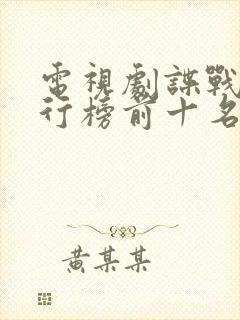 電視劇諜戰
行榜前十名
黃某某